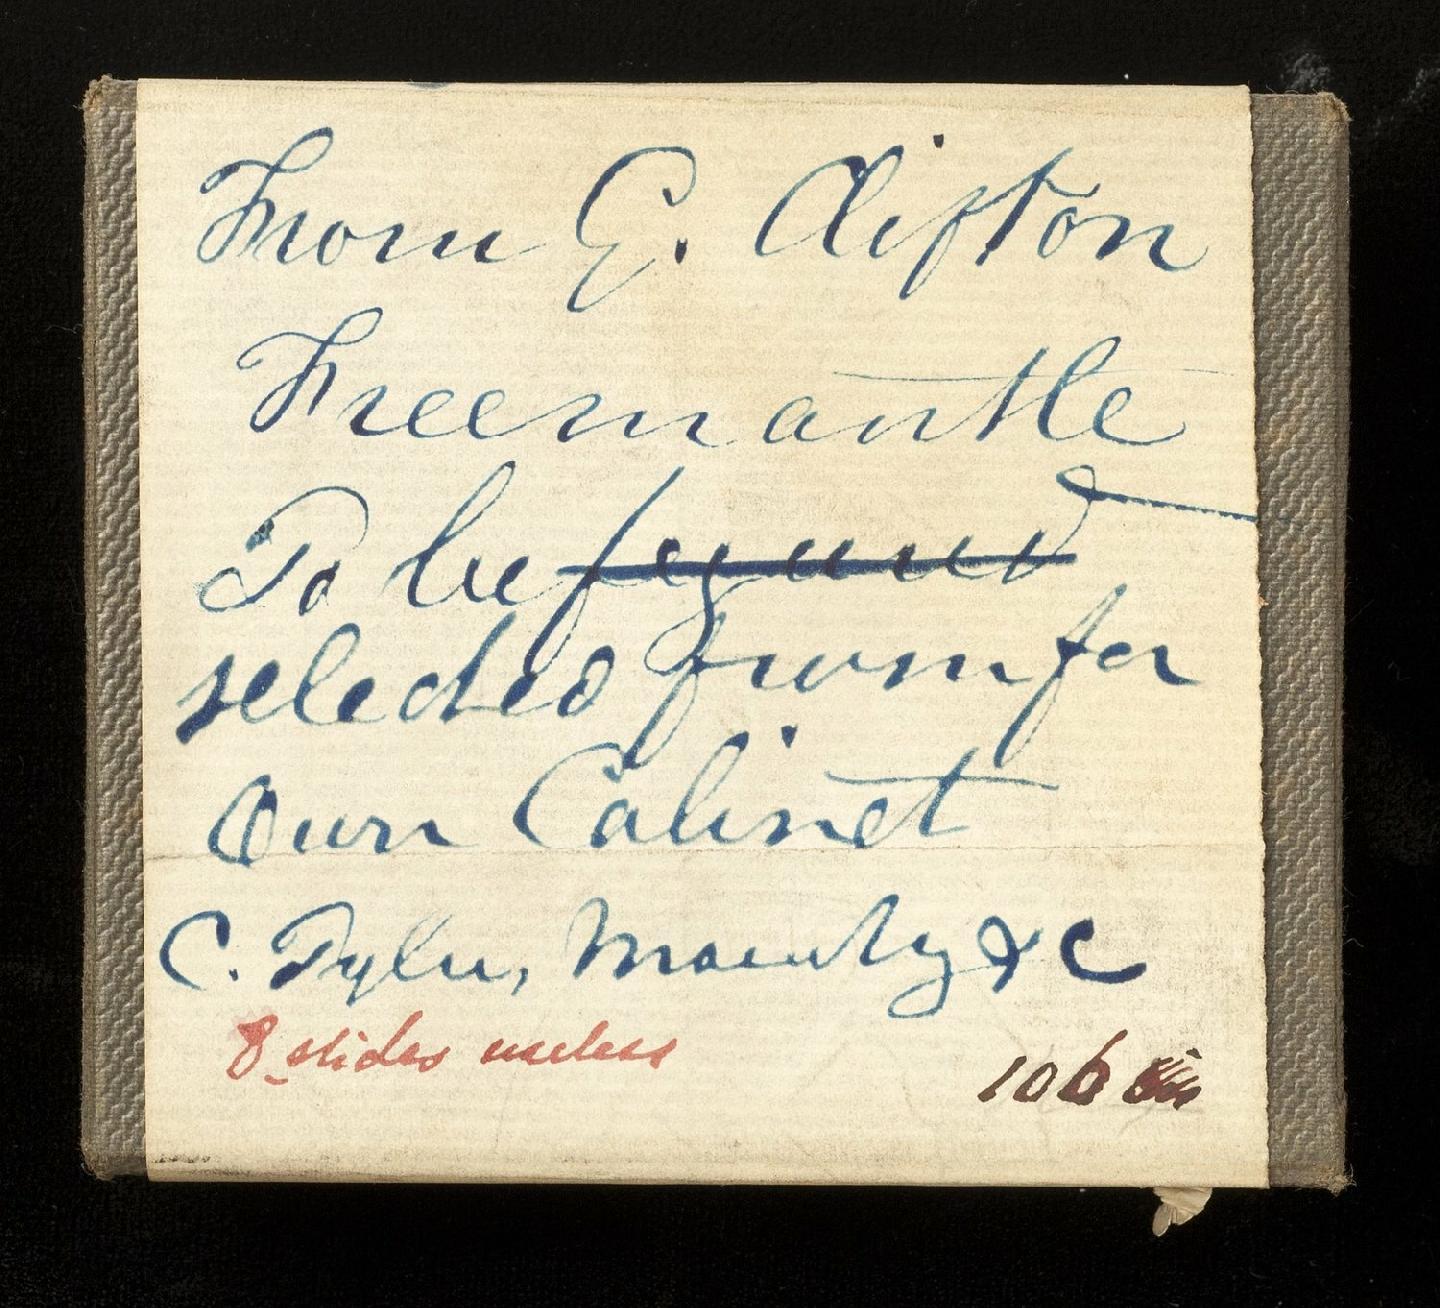 From G. Clifton
Freemantle
To be
selected from for
Own Cabinet
C. Tyler, &c
8 slides useless
106